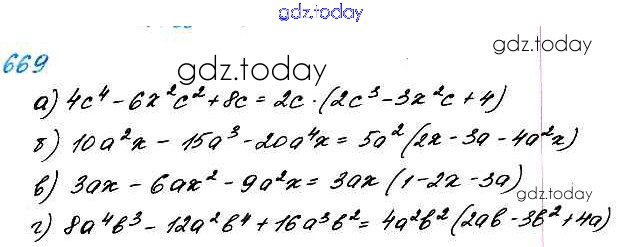 gdz.today
gdz.today
669
gdz.today
а) 4c⁴ - 6x²c² + 8c = 2c · (2c³ - 3x²c + 4)
б) 10a²x - 15a³ - 20a⁴x = 5a² (2x - 3a - 4a²x)
в) 3ax - 6ax² - 9a²x = 3ax (1 - 2x - 3a)
gdz.today
г) 8a⁴b³ - 12a²b⁴ + 16a³b² = 4a²b² (2ab - 3b² + 4a)